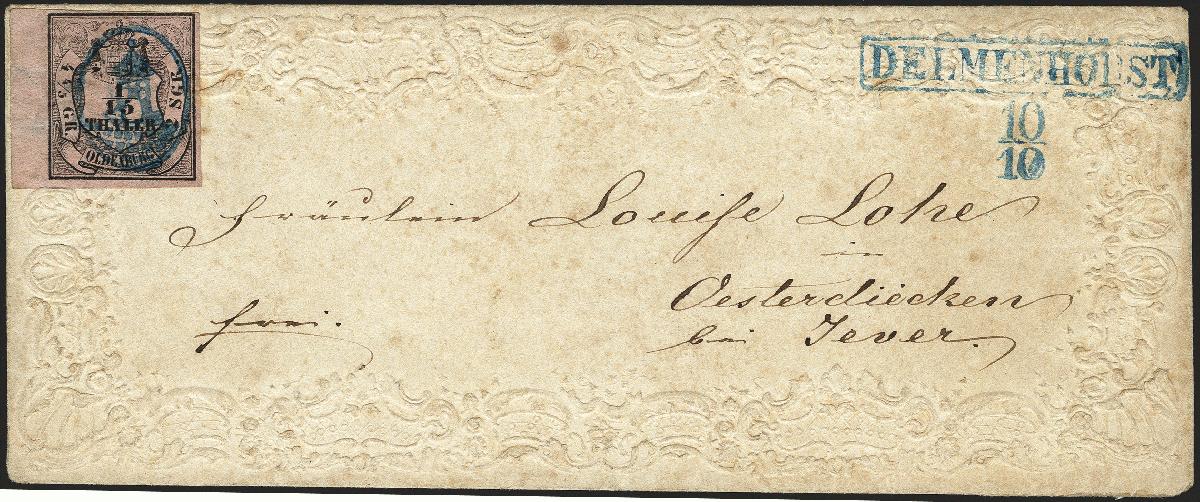 4⅘ GR
2⅖ SGR
1
15
THALER
OLDENBURG
DELMENHORST
10
10
Fräulein Louise Lohe
in
Oesterdiecken
bei Jever.
frei.